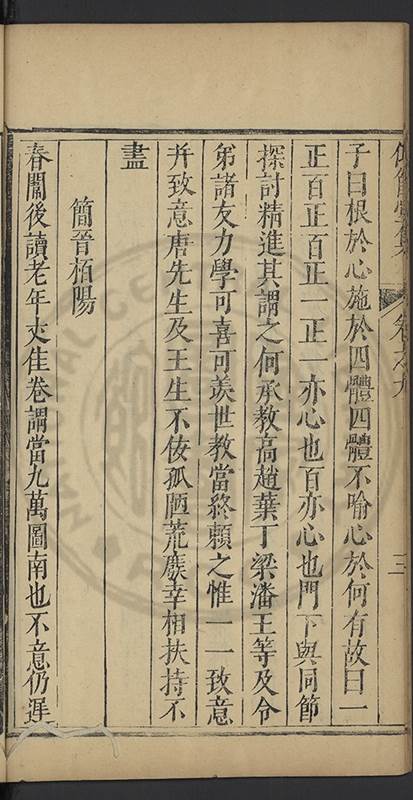 卷之九
三
子曰根於心施於四體四體不喻心於何有故曰一
正百正百正一正一亦心也百亦心也門下與同節
探討精進其謂之何承教高趙葉丁梁潘王等及令
弟諸友力學可喜可羨世教當終賴之惟一一致意
并致意唐先生及王生不侫孤陋荒廢幸相扶持不
盡
簡晉栢陽
春闈後讀老年丈佳卷謂當九萬圖南也不意仍遲